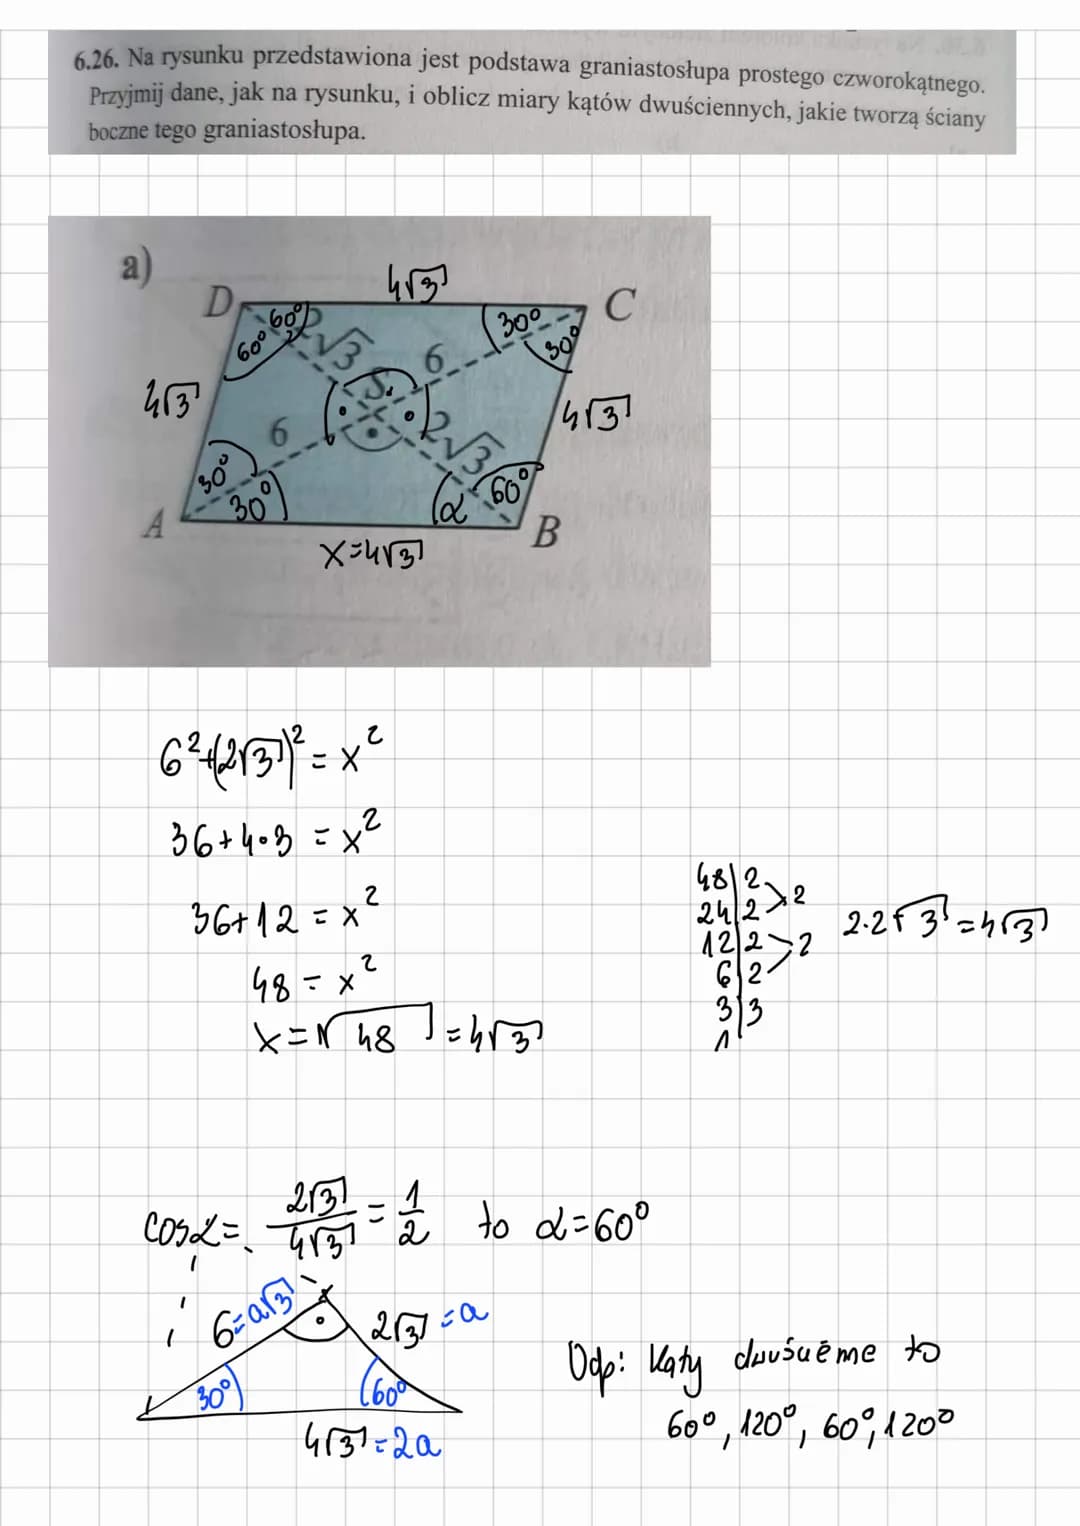 6.26. Na rysunku przedstawiona jest podstawa graniastosłupa prostego czworokątnego.
Przyjmij dane, jak na rysunku, i oblicz miary kątów dwuściennych, jakie tworzą ściany
boczne tego graniastosłupa.
a)
4√3
D C
60° 30°
60° 2√3 6 30°
4√3 S 4√3
6 2√3
30° 60°
30° α
A B
x=4√3
6²+(2√3)² = x²
36+4·3 = x²
36+12 = x²
48 = x²
x=√48 = 4√3
48|2 >2
24|2
12|2 >2
6|2
3|3
1
2·2√3 = 4√3
cosα = 2√3/4√3 = 1/2 to α=60°
6=a√3 2√3 =a
30° 60°
4√3 =2a
Odp: Kąty dwuścienne to
60°, 120°, 60°, 120°